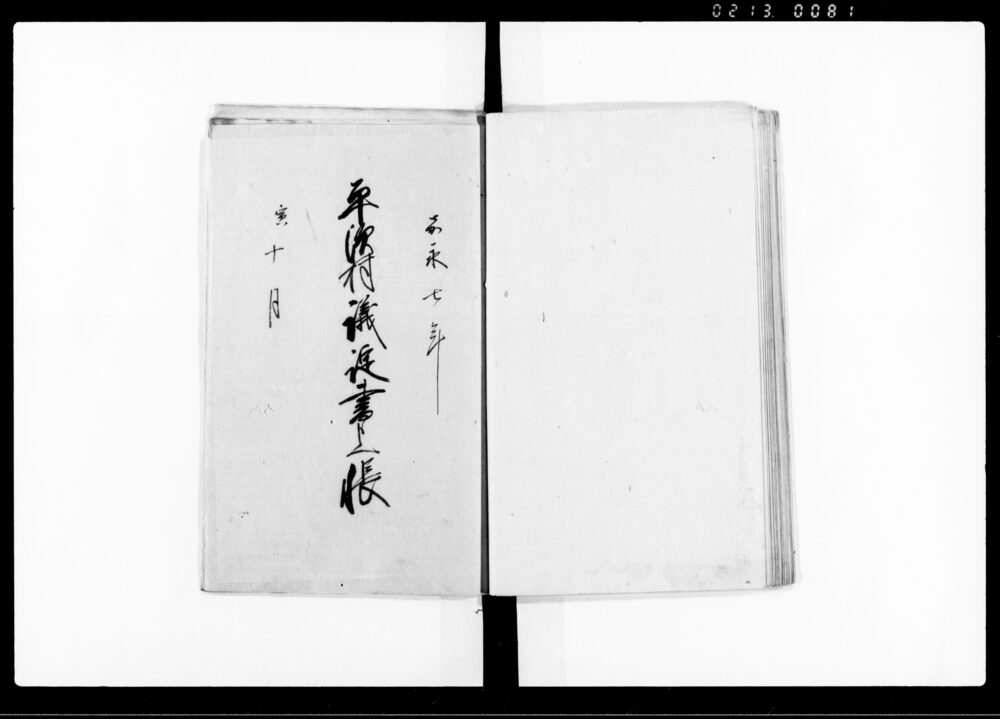 0213.0081
嘉永七年
平濱村議定書上帳
寅十月